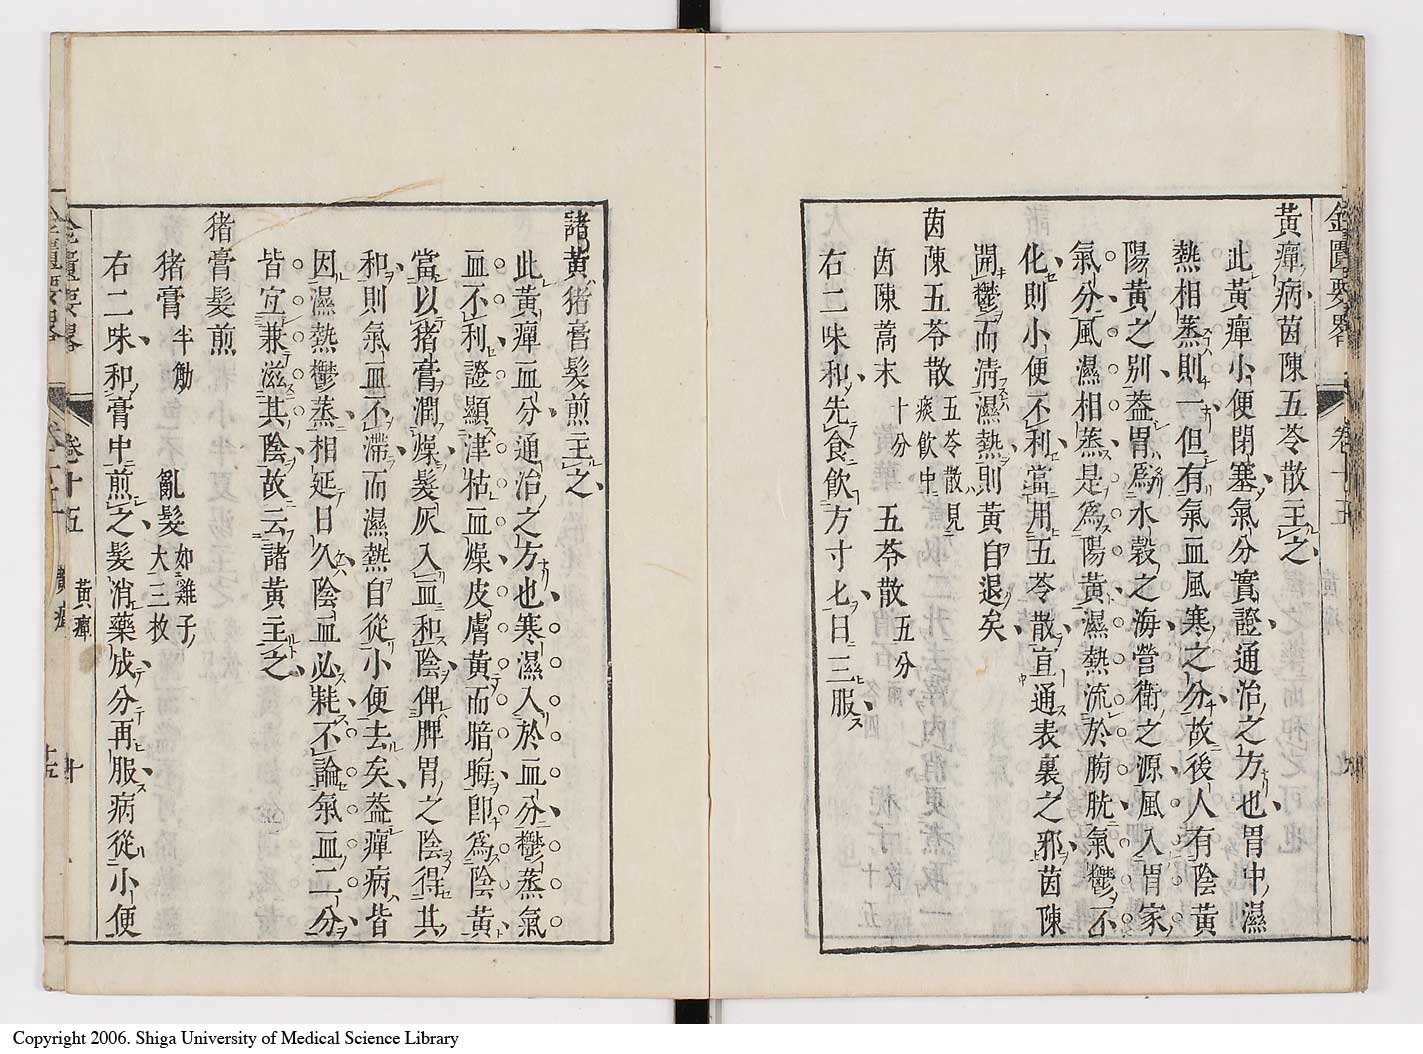 金匱要畧 卷十五
黃癉病茵陳五苓散主之
此黃癉小便閉塞氣分實證通治之方也胃中濕
熱相蒸則一但有氣血風寒之分故後人有陰黃
陽黃之別葢胃爲水穀之海營衛之源風入胃家
氣分風濕相蒸是爲陽黃濕熱流於膀胱氣鬱不
化則小便不利當用五苓散宣通表裏之邪茵陳
開鬱而淸濕熱則黃自退矣
茵陳五苓散 五苓散見痰飲中
茵陳蒿末 十分 五苓散 五分
右二味和先食飲方寸匕日三服
諸黃猪膏髮煎主之
此黃癉血分通治之方也寒濕入於血分鬱蒸氣
血不利證顯津枯血燥皮膚黃而暗晦卽爲陰黃
當以猪膏潤燥髮灰入血和陰俾脾胃之陰得其
和則氣血不滯而濕熱自從小便去矣葢癉病皆
因濕熱鬱蒸相延日久陰血必耗不論氣血二分
皆宜兼滋其陰故云諸黃主之
猪膏髮煎
猪膏 半觔 亂髮 如雞子大三枚
右二味和膏中煎之髮消藥成分再服病從小便
金匱要畧 卷十五 黃癉 十